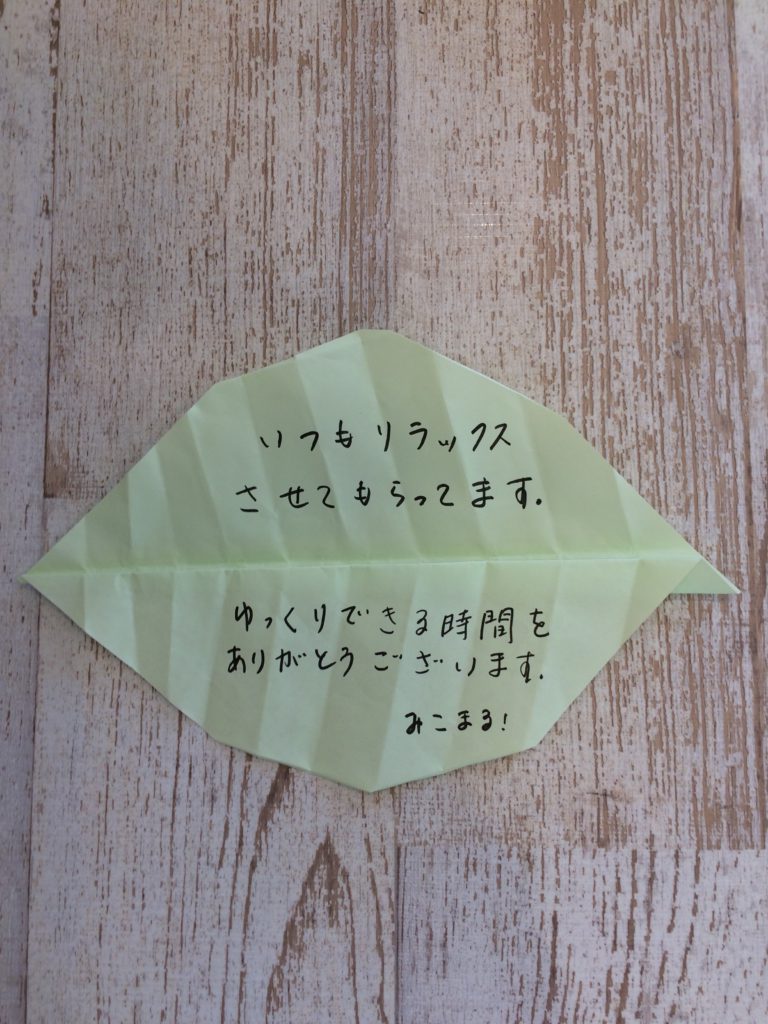 いつもリラックス
させてもらってます.
ゆっくりできる時間を
ありがとうございます.
みこまる!